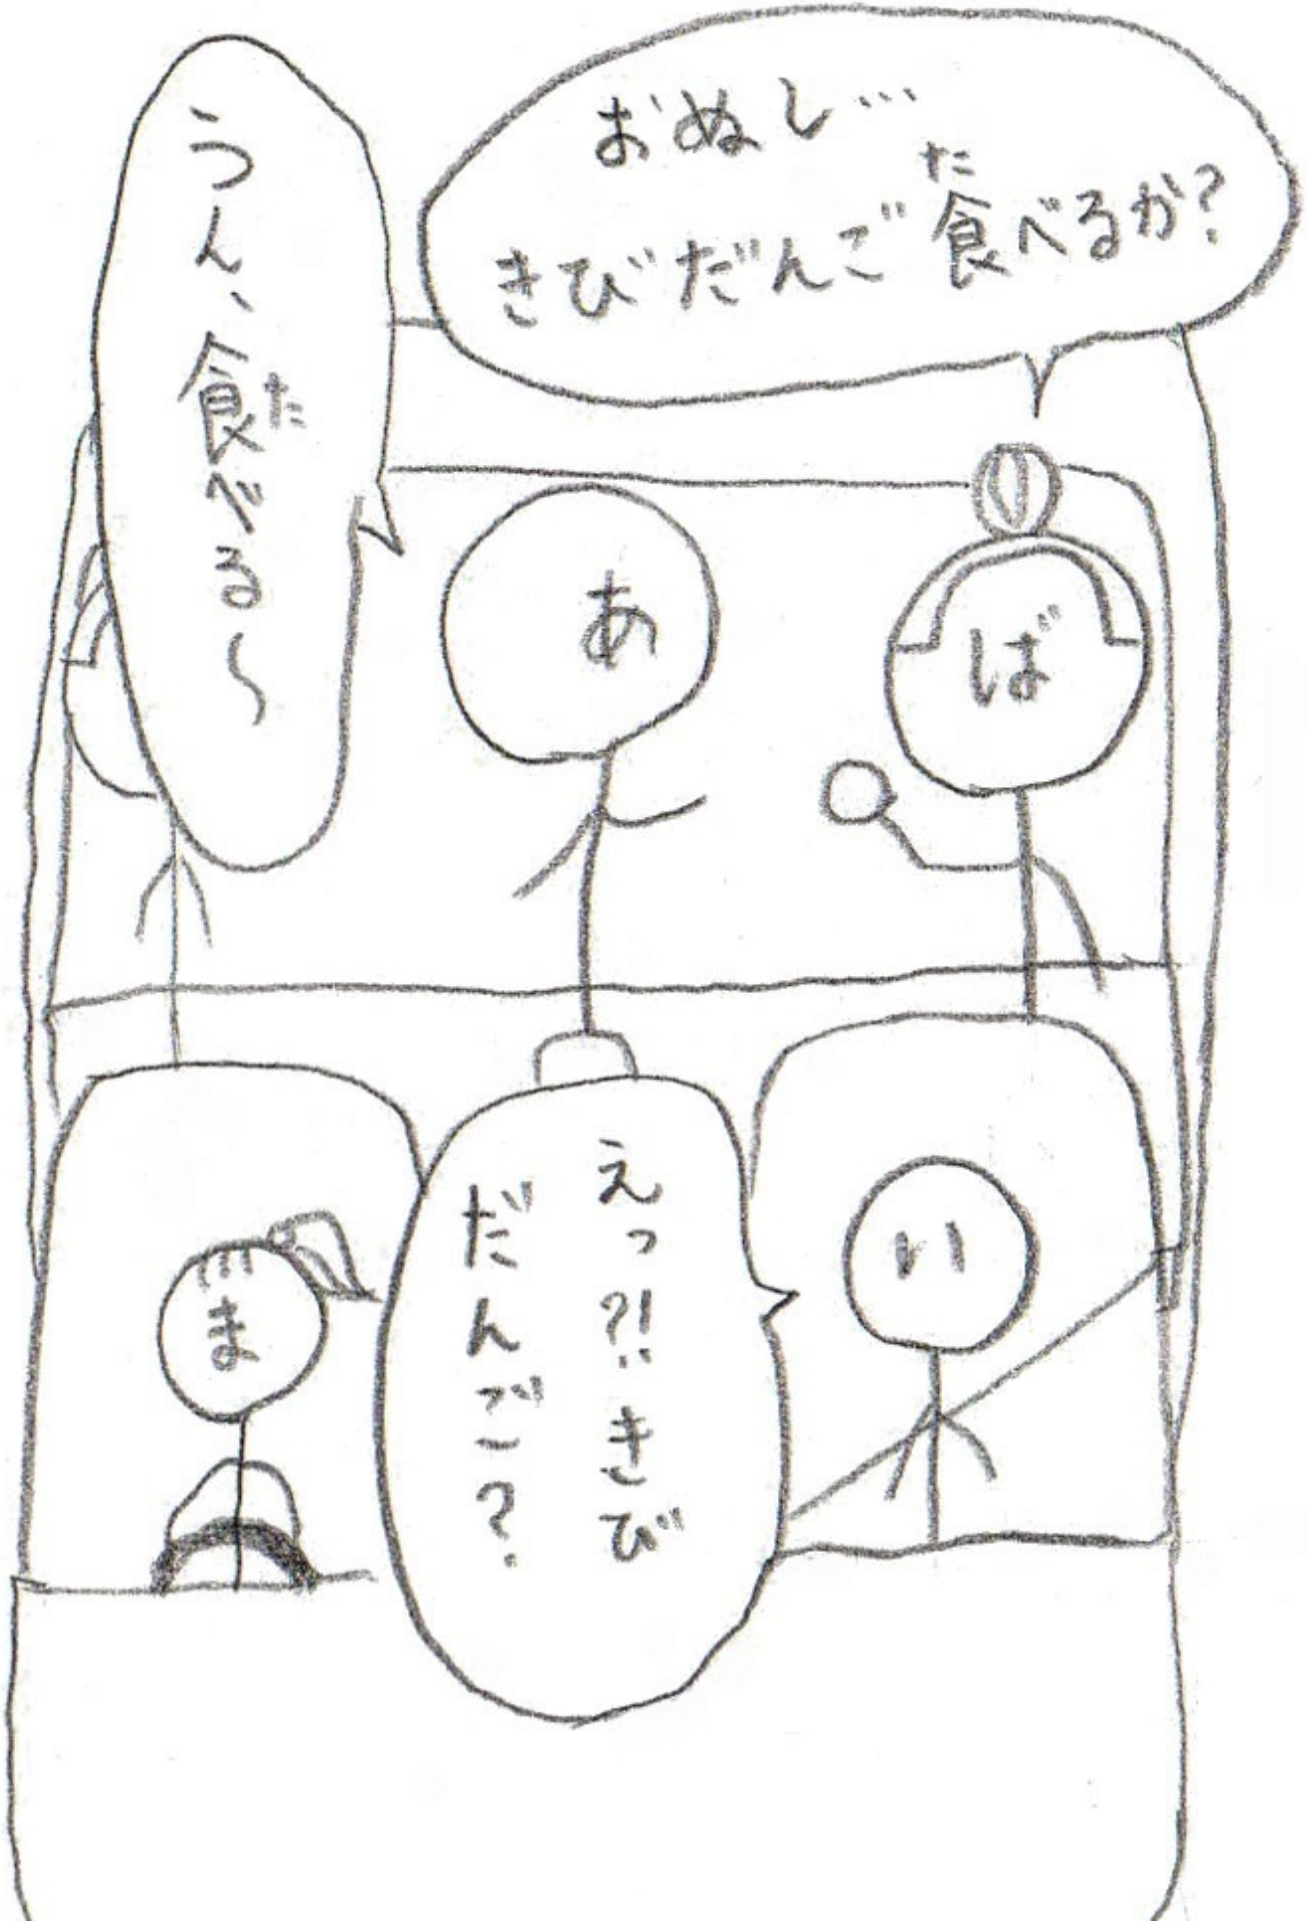 おぬし…
きびだんご食べるか?
た
うん、食べる〜
た
あ
ば
えっ?!きび
だんご?
い
ま